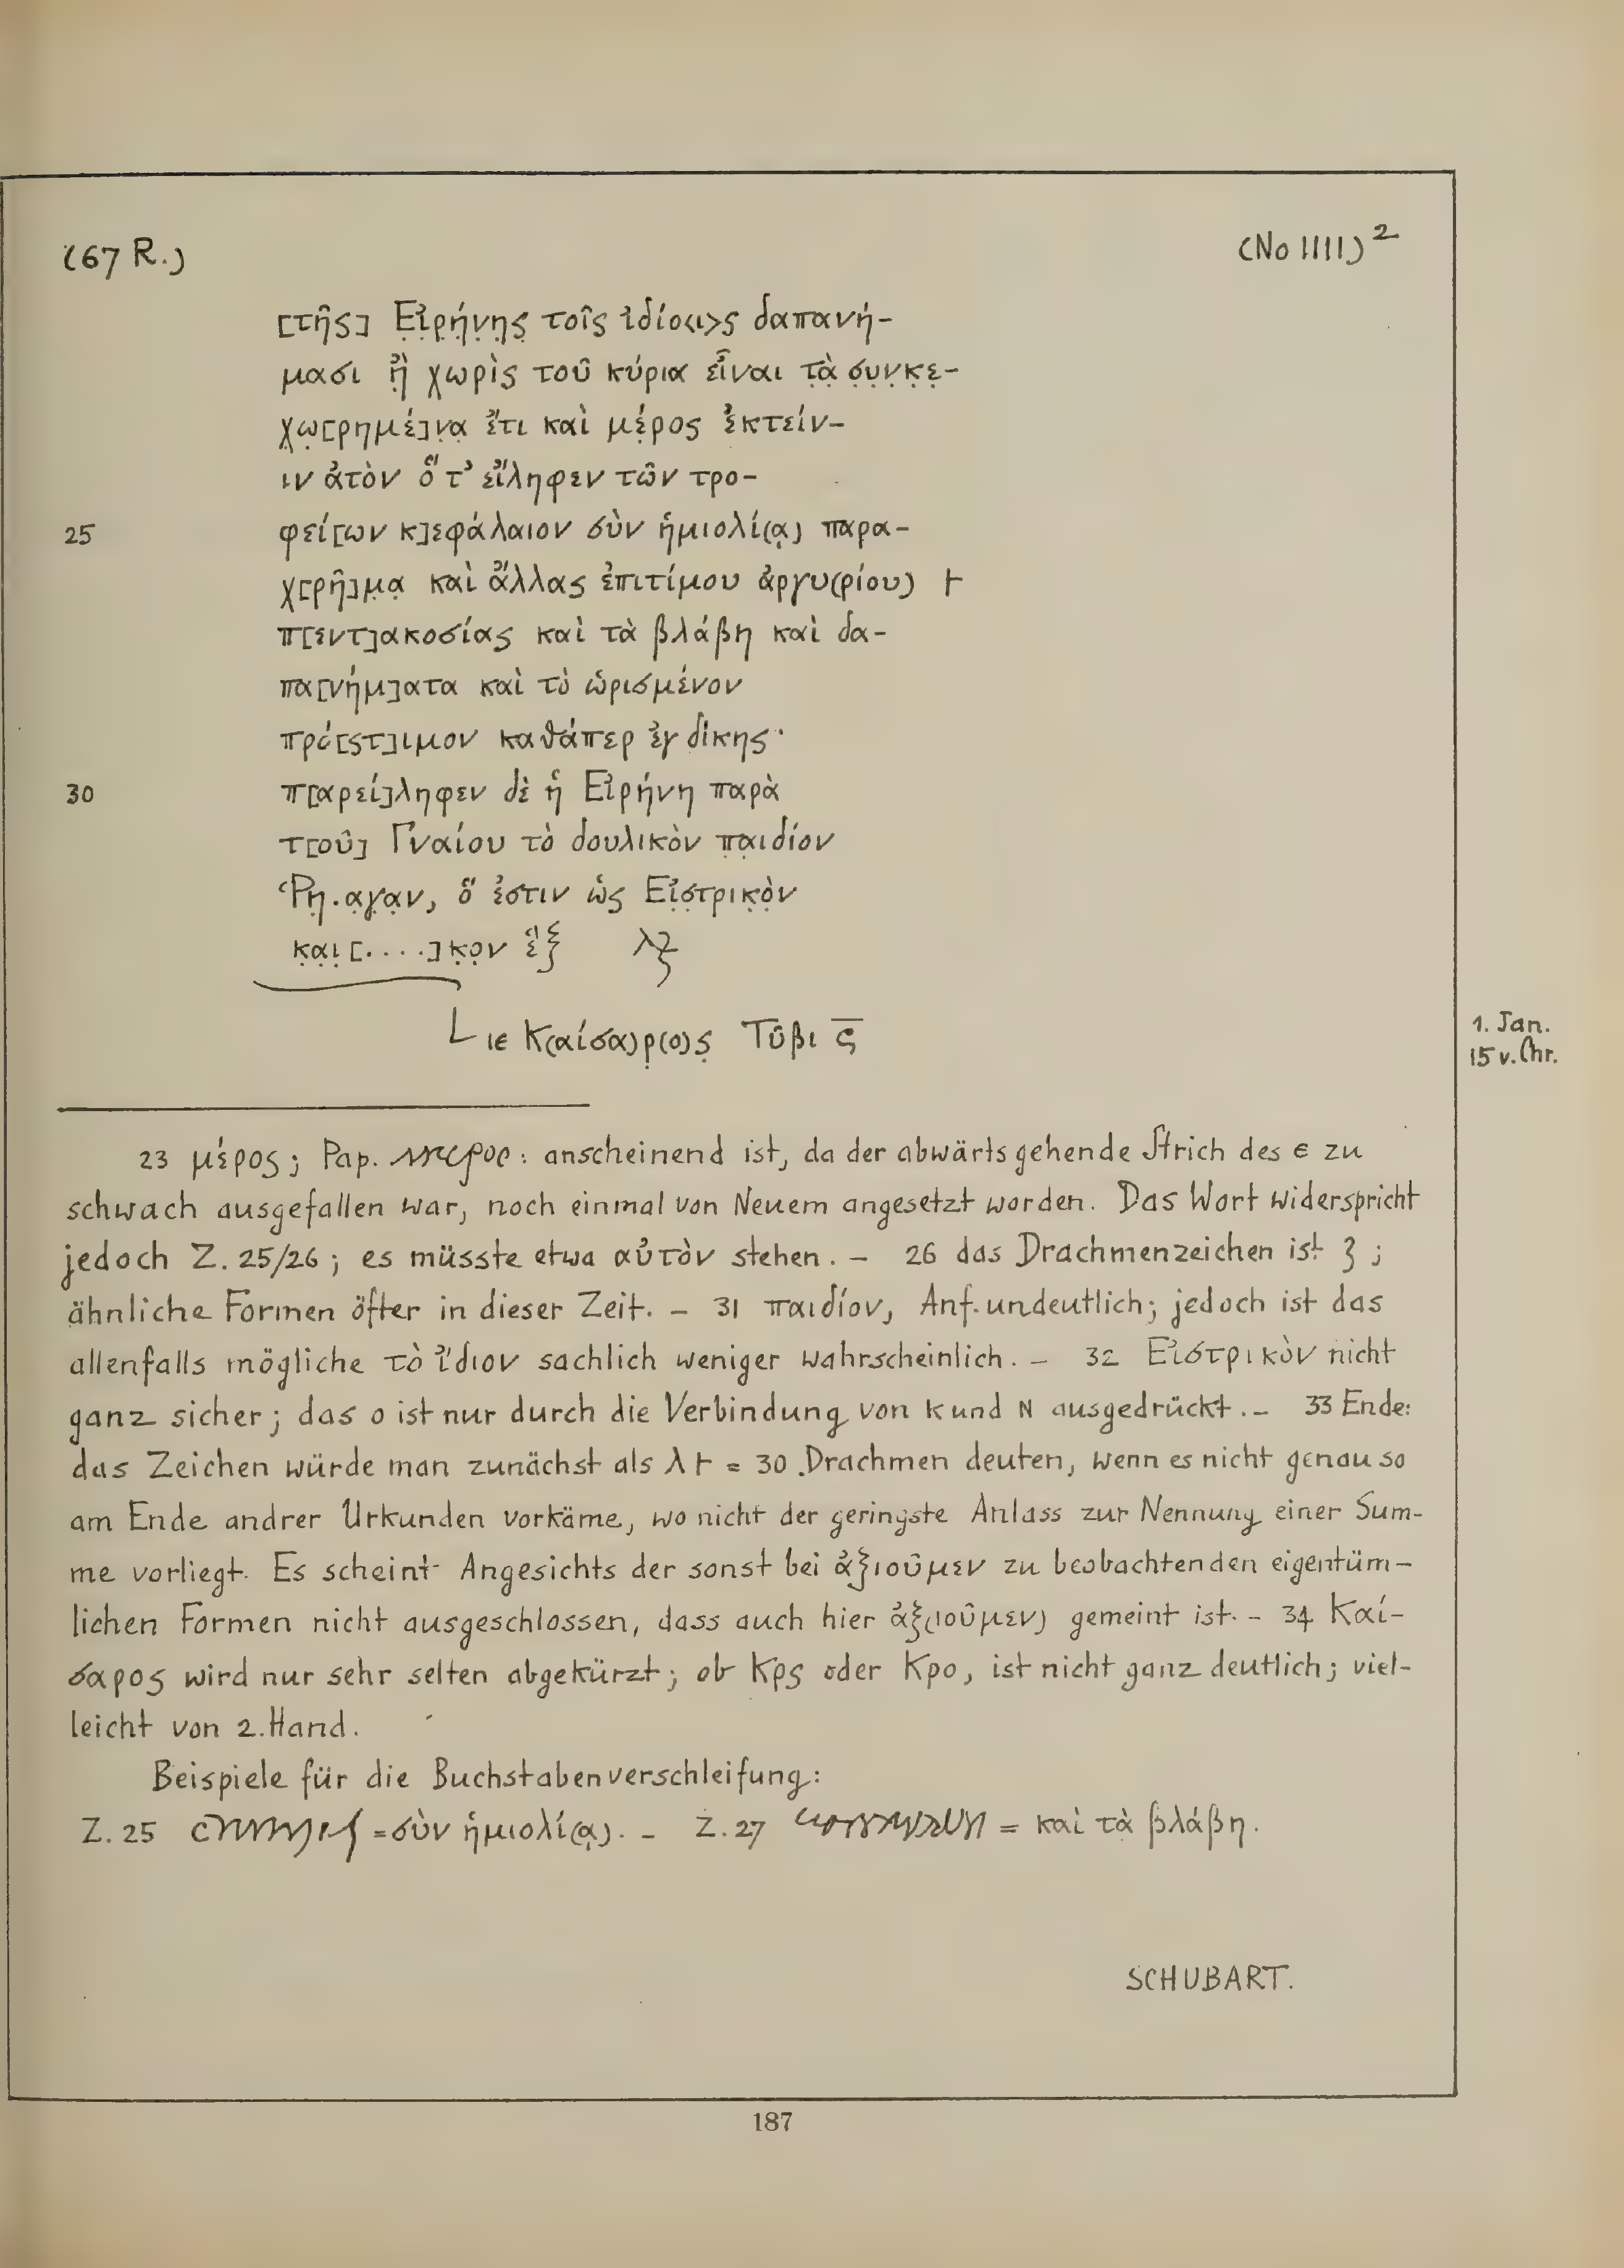 (67 R.)
(No IIII)²
[τῆς] Ε̣ἰ̣ρ̣ή̣ν̣η̣ς̣ τοῖς ἰδίο<ι>ς δαπανή-
μασι ἢ̣ χωρὶς τοῦ κύρια εἶναι τ̣ὰ̣ σ̣υ̣ν̣κ̣ε̣-
χ̣ω̣[ρημέ]ν̣α̣ ἔτι καὶ μέρος ἐκτείν-
ιν ἀτὸν ὅ τ’ εἴληφεν τῶν τρο-
25 φεί[ων κ]εφάλαιον σὺν ἡμιολί(ᾳ) παρα-
χ[ρῆ]μ̣α̣ καὶ ἄλλας ἐπιτίμου ἀργυ(ρίου) 𐅂
π[εντ]ακοσίας καὶ τὰ βλάβη καὶ δα-
πα[νήμ]ατα καὶ τὸ ὡρισμένον
πρό[ςτ]ιμον καθάπερ ἐγ δίκης·
30 π[αρεί]ληφεν δὲ ἡ Εἰρήνη παρὰ
τ[οῦ] Γναίου τὸ δουλικὸν π̣α̣ιδίον
Ῥη̣.α̣γ̣α̣ν, ὅ ἐστιν ὡς Εἰ̣σ̣τρικ̣ὸ̣ν
κ̣α̣ι̣[....]κ̣ο̣ν ἓξ
L ιε Κ(αίσα)ρ̣(ο)ς̣ Τῦβι ϛ̅
1. Jan.
15 v. Chr.
23 μέρος; Pap. : anscheinend ist, da der abwärtsgehende Strich des ε zu
schwach ausgefallen war, noch einmal von Neuem angesetzt worden. Das Wort widerspricht
jedoch Z. 25/26; es müsste etwa αὐτὸν stehen. – 26 das Drachmenzeichen ist ʒ ;
ähnliche Formen öfter in dieser Zeit. – 31 παιδίον, Anf. undeutlich; jedoch ist das
allenfalls mögliche τὸ ἴδιον sachlich weniger wahrscheinlich. – 32 Εἰστρικὸν nicht
ganz sicher; das o ist nur durch die Verbindung von K und N ausgedrückt. – 33 Ende:
das Zeichen würde man zunächst als λ 𐅂 = 30 Drachmen deuten, wenn es nicht genau so
am Ende andrer Urkunden vorkäme, wo nicht der geringste Anlass zur Nennung einer Sum-
me vorliegt. Es scheint Angesichts der sonst bei ἀξιοῦμεν zu beobachtenden eigentüm-
lichen Formen nicht ausgeschlossen, dass auch hier ἀξ(ιοῦμεν) gemeint ist. – 34 Καί-
σαρος wird nur sehr selten abgekürzt; ob Κρς oder Κρο, ist nicht ganz deutlich; viel-
leicht von 2. Hand.
Beispiele für die Buchstabenverschleifung:
Z. 25 = σὺν ἡμιολί(ᾳ). – Z. 27 = καὶ τὰ βλάβη.
SCHUBART.
187